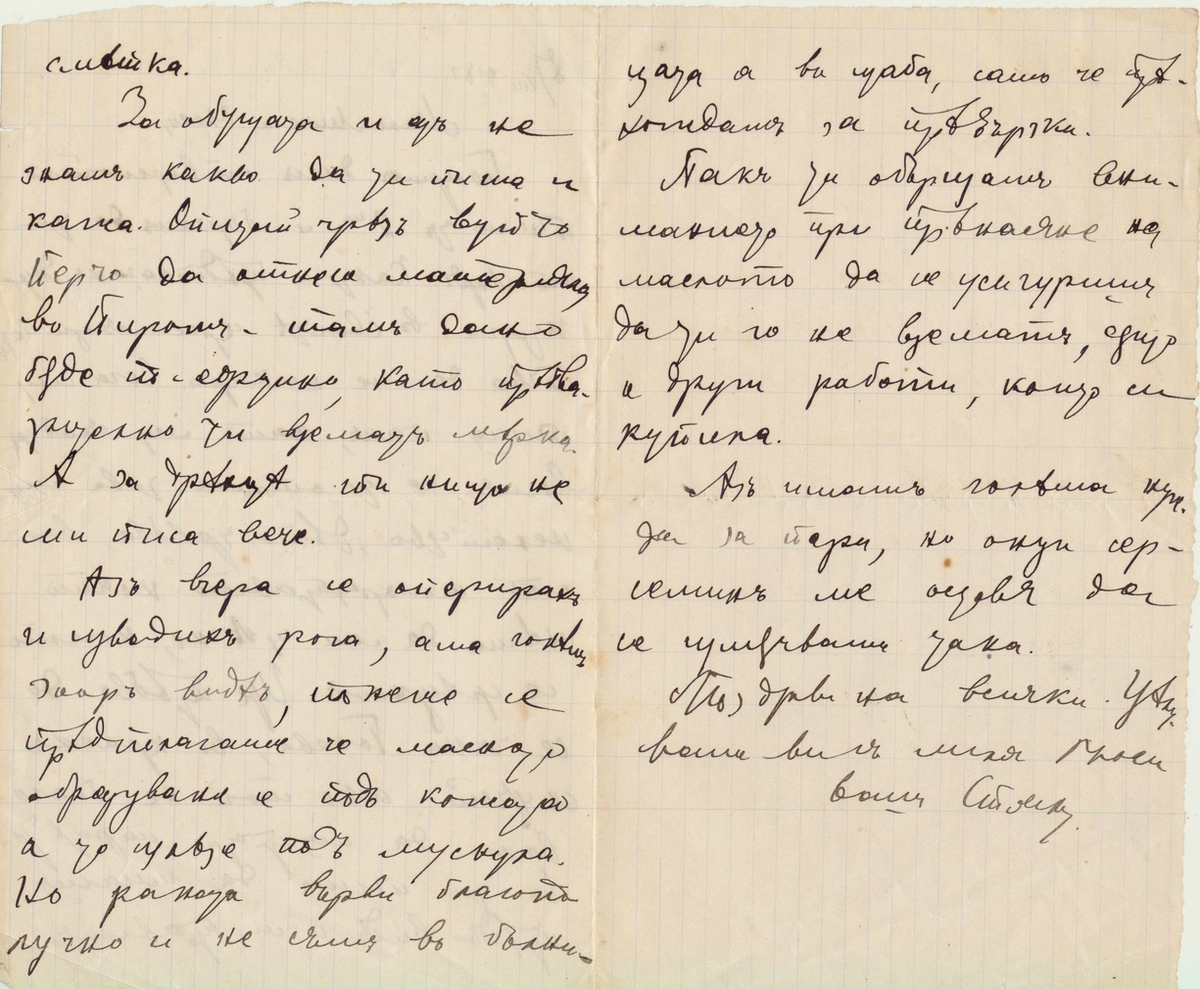 смѣтка.
За обущата и азъ не
знамъ какво да ти пиша и
кажа. Опитай чрезъ вуйчо
Перчо да отнеса материяла
во Пиротъ - тамъ дано
бѫде по-сгрушно, като прѣдва-
рително ти взематъ мѣрка.
А за дрѣхитѣ ти нищо не
ми писа вече.
Азъ вчера се оперирахъ
и извадихъ рога, ама голѣмъ
зоръ видѣхъ, понеже се
прѣдполагаше че маслото
образувано е подъ кожата
а то излѣзе подъ мускула.
Но раната върви благопо
лучно и не съмъ въ болни-
цата а въ щаба, само че прѣ-
хождамъ за прѣвръзки.
Пакъ ти обръщамъ вни-
манието при прѣнасяне на
маслото да се усигуришъ
да ти го не взематъ, също
и други работи, които си
купила.
Азъ имамъ голѣма нуж-
да за пари, но онзи сер-
семинъ ме остовя да
се измѫчвамъ така.
Поздрави на всички. Цѣлу-
вамъ ви съ миля
вашъ Стоянъ